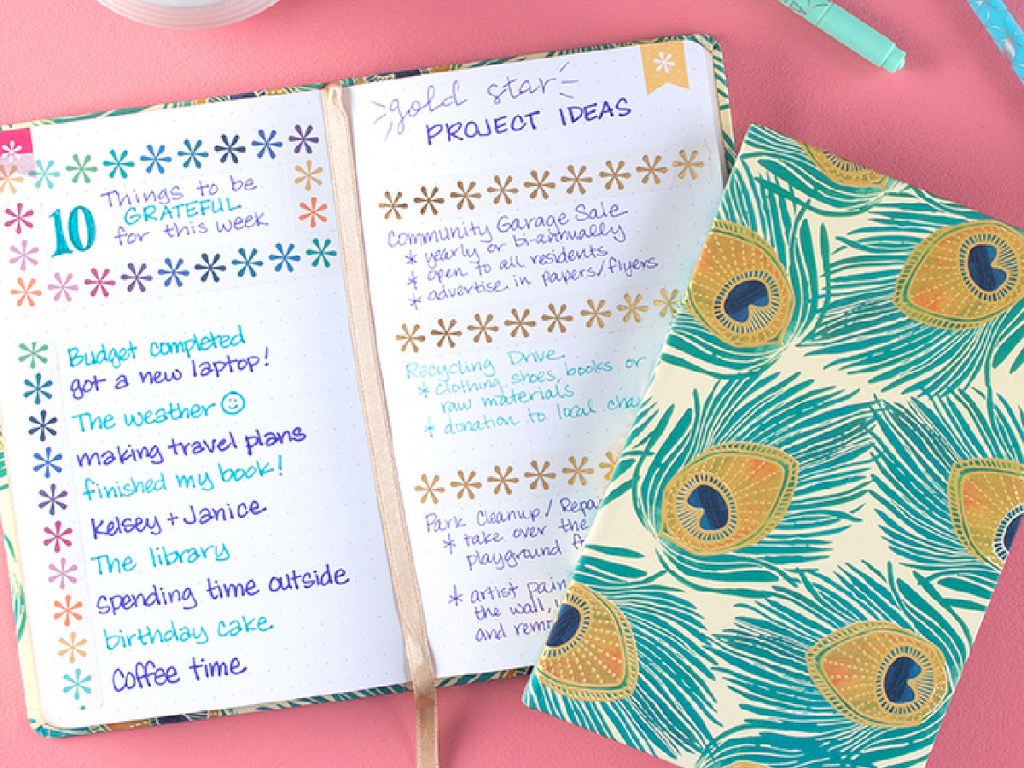 10
Things to be
GRATEFUL
for this week
Budget completed
got a new laptop!
The weather
making travel plans
finished my book!
Kelsey + Janice
The library
spending time outside
birthday cake
Coffee time
gold star
PROJECT IDEAS
Community Garage Sale
* yearly or bi-annually
* open to all residents
* advertise in papers/flyers
Recycling Drive
* clothing, shoes, books or
raw materials
* donation to local
Park Cleanup/
* take over the
playground
* artist
the wall,
and